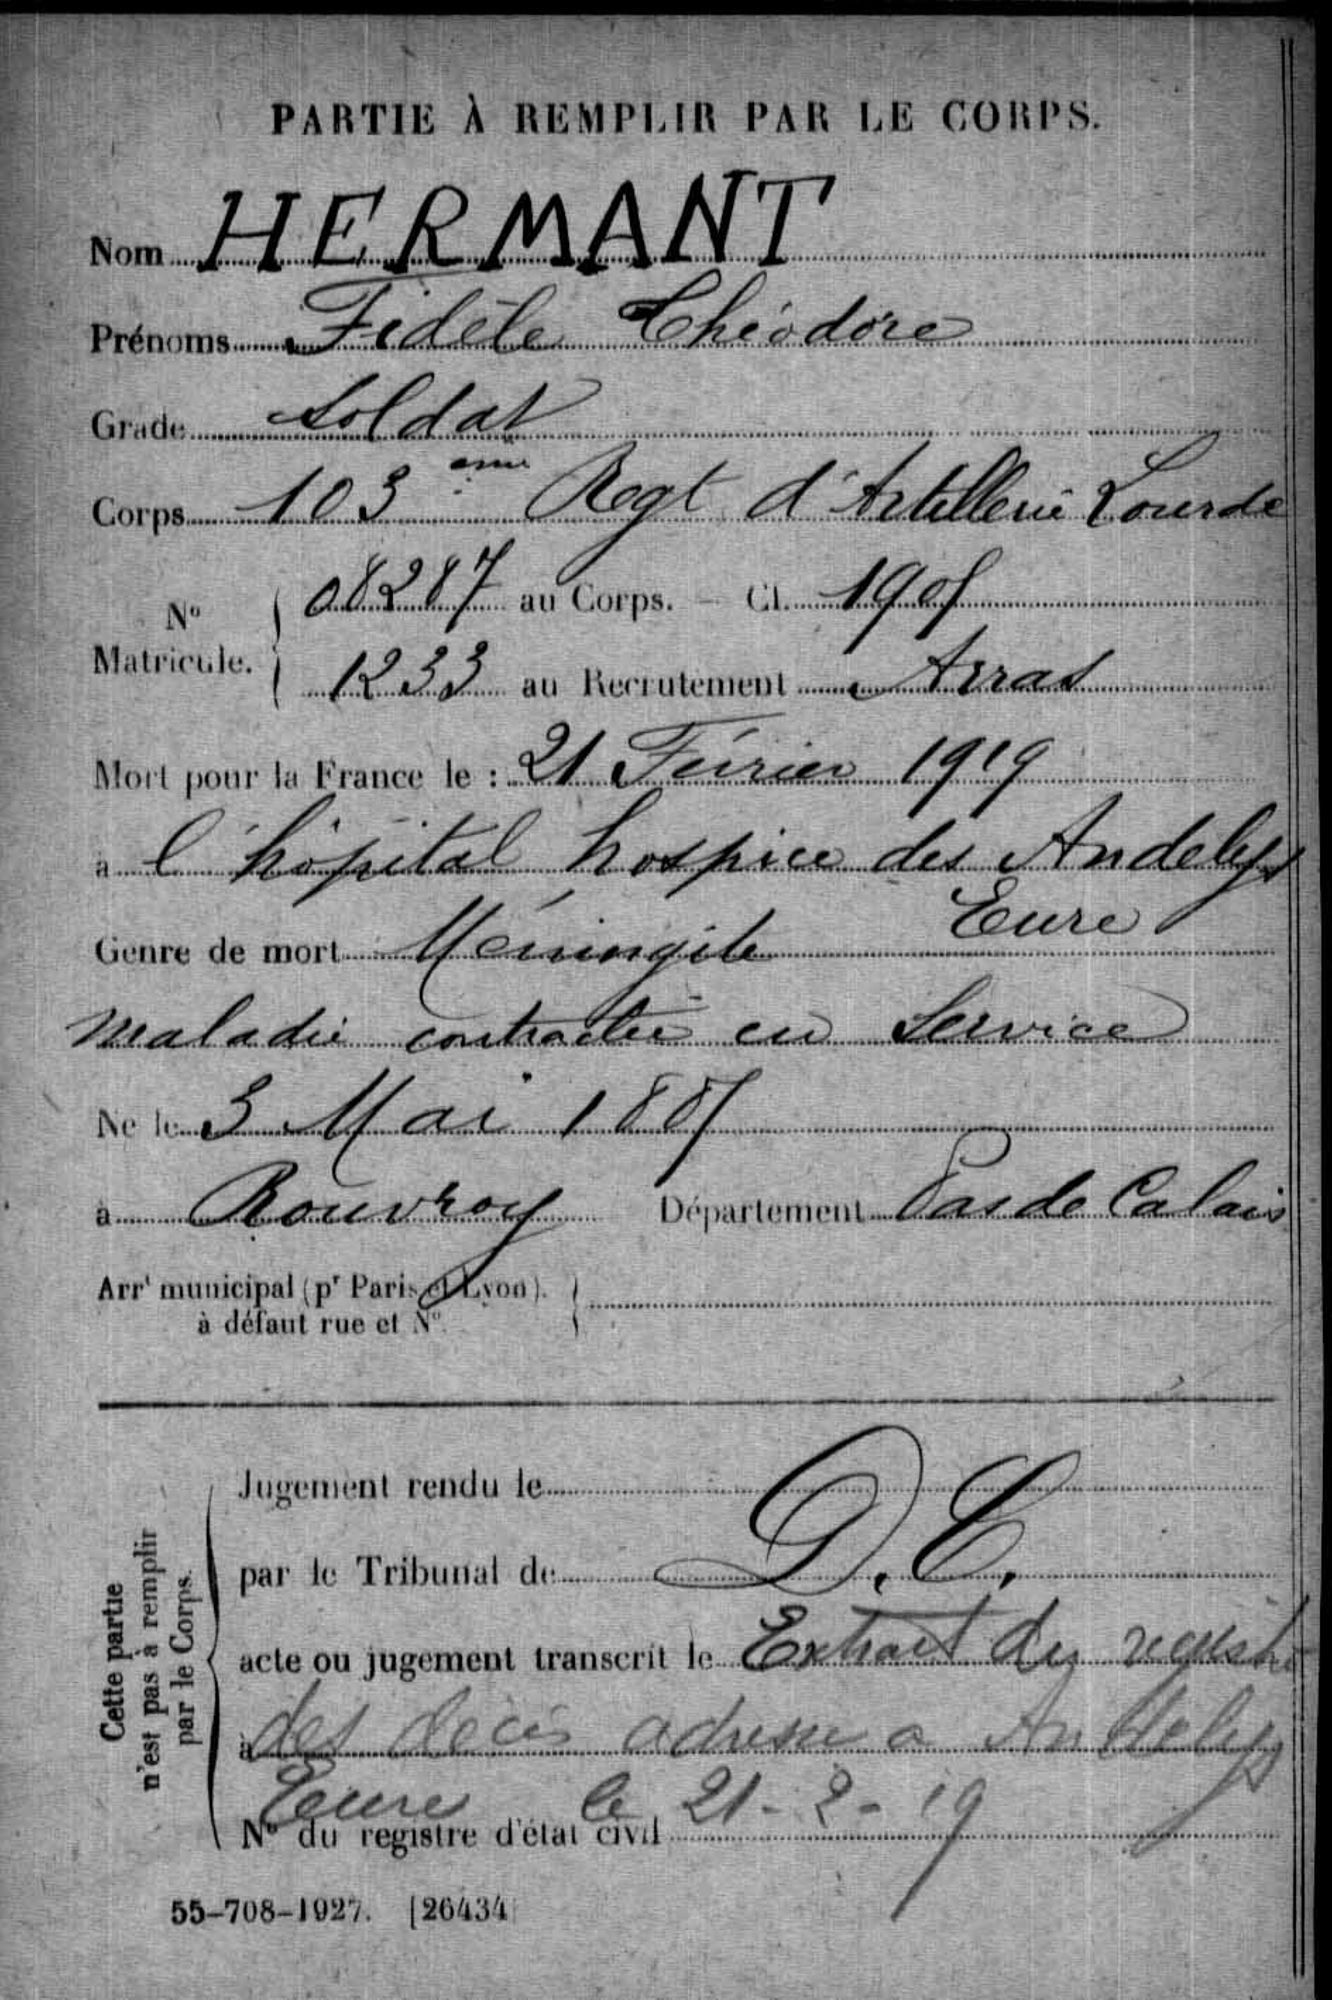 PARTIE À REMPLIR PAR LE CORPS.
Nom HERMANT
Prénoms Fidèle Théodore
Grade Soldat
Corps 103ème Regt d'Artillerie Lourde
08287 au Corps. - Cl. 1905
No Matricule.
1233 au Recrutement Arras
Mort pour la France le : 21 Février 1919
à l'hôpital hospice des Andelys
Eure
Genre de mort Méningite
maladie contractée en Service
Né le 3 Mai 1885
à Rouvroy Département Pas de Calais
Arrt municipal (pr Paris et Lyon).
à défaut rue et No.
Cette partie
n'est pas à remplir
par le Corps.
Jugement rendu le
par le Tribunal de D.C.
acte ou jugement transcrit le Extrait du registre
à des décès adressé a Andelys
Eure le 21-2-19
No du registre d'état civil
55-708-1927. [26434]